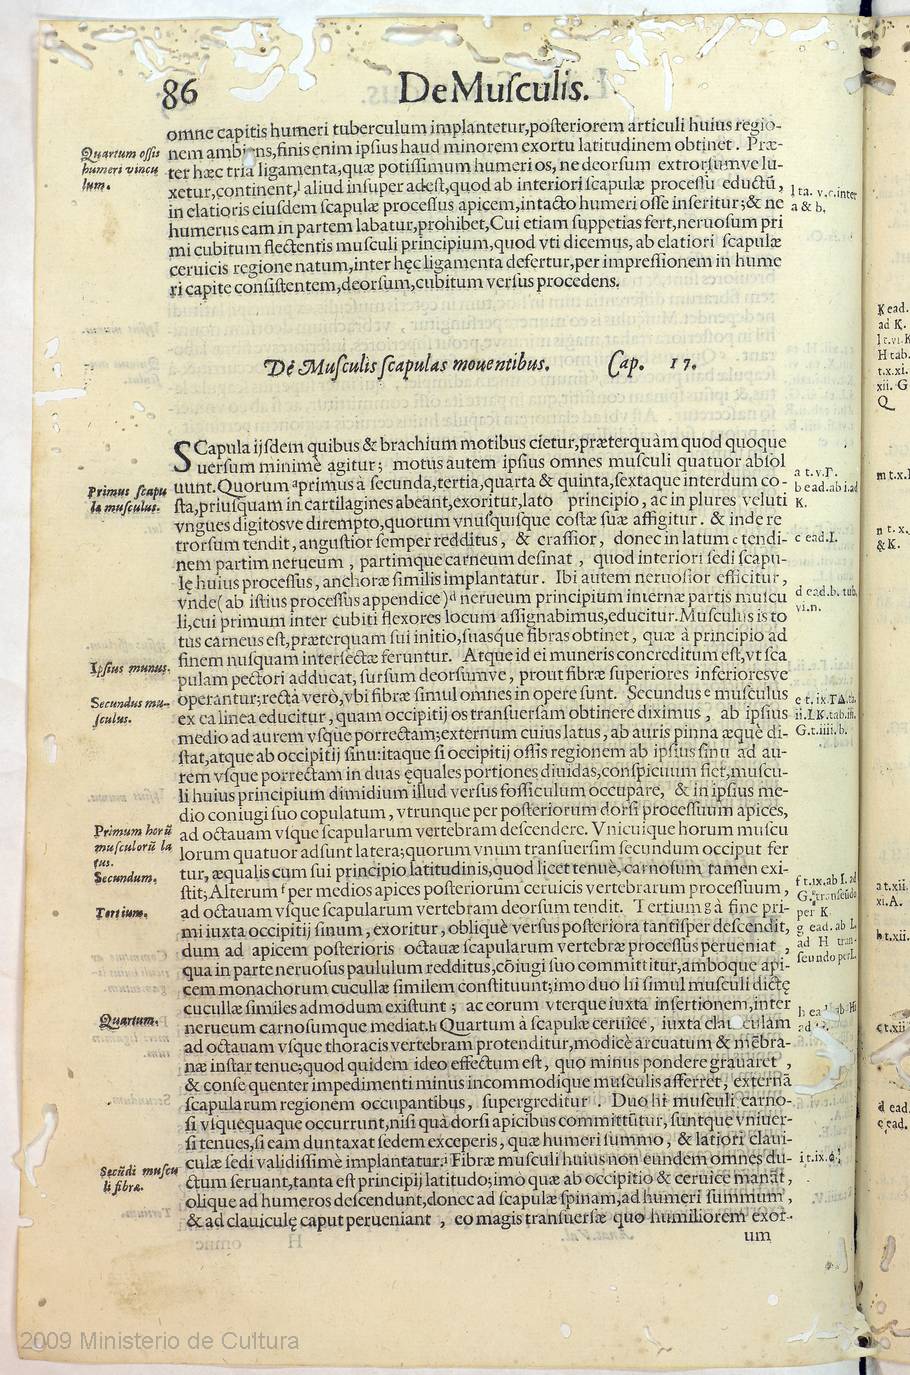 86
De Muſculis.
omne capitis humeri tuberculum implantetur,poſteriorem articuli huius regio-
nem ambi ns,finis enim ipſius haud minorem exortu latitudinem obtinet. Præ-
ter hæc tria ligamenta,quæ potiſſimum humeri os, ne deorſum extrorſumve lu-
xetur,continent,l aliud inſuper adeſt,quod ab interiori ſcapulæ proceſſu eductũ,
in elatioris eiuſdem ſcapulæ proceſſus apicem,intacto humeri oſſe inſeritur;& ne
humerus eam in partem labatur,prohibet,Cui etiam ſuppetias fert,neruoſum pri
mi cubitum flectentis muſculi principium,quod vti dicemus, ab elatiori ſcapulæ
ceruicis regione natum,inter hęc ligamenta defertur,per impreſſionem in hume
ri capite conſiſtentem,deorſum,cubitum verſus procedens.
Quartum oſſis
humeri vincu
lum.
l ta. v.c.inter
a & b.
De Muſculis ſcapulas mouentibus. Cap. 17.
SCapula ijſdem quibus & brachium motibus cietur,præterquàm quod quoque
uerſum minimè agitur; motus autem ipſius omnes muſculi quatuor abſol
uunt.Quorum a primus à ſecunda,tertia,quarta & quinta,ſextaque interdum co-
ſta,priuſquam in cartilagines abeant,exoritur,lato principio, ac in plures veluti
vngues digitosve dirempto,quorum vnuſquiſque coſtæ ſuæ affigitur. & inde re
trorſum tendit, anguſtior ſemper redditus, & craſſior, donec in latum c tendi-
nem partim nerueum, partimque carneum deſinat, quod interiori ſedi ſcapu-
lę huius proceſſus, anchoræ ſimilis implantatur. Ibi autem neruoſior efficitur,
vnde( ab iſtius proceſſus appendice) d nerueum principium internæ partis muſcu
li,cui primum inter cubiti flexores locum aſſignabimus,educitur.Muſculus is to
tus carneus eſt,præterquam ſui initio,ſuasque fibras obtinet, quæ à principio ad
finem nuſquam interſectæ feruntur. Atque id ei muneris concreditum eſt,vt ſca
pulam pectori adducat, ſurſum deorſumve, prout fibræ ſuperiores inferioresve
operantur;rectà verò,vbi fibræ ſimul omnes in opere ſunt. Secundus e muſculus
ex ea linea educitur, quam occipitij os tranſuerſam obtinere diximus, ab ipſius
medio ad aurem vſque porrectam;externum cuius latus, ab auris pinna æquè di-
ſtat,atque ab occipitij ſinu:itaque ſi occipitij oſſis regionem ab ipſius ſinu ad au-
rem vſque porrectam in duas ęquales portiones diuidas,conſpicuum fiet,muſcu-
li huius principium dimidium illud verſus foſſiculum occupare, & in ipſius me-
dio coniugi ſuo copulatum, vtrunque per poſteriorum dorſi proceſſuum apices,
ad octauam vſque ſcapularum vertebram deſcendere. Vnicuique horum muſcu
lorum quatuor adſunt latera;quorum vnum tranſuerſim ſecundum occiput fer
tur, æqualis cum ſui principio latitudinis,quod licet tenuè, carnoſum tamen exi-
ſtit;Alterum f per medios apices poſteriorum ceruicis vertebrarum proceſſuum,
ad octauam vſque ſcapularum vertebram deorſum tendit. Tertium g à fine pri-
mi iuxta occipitij ſinum, exoritur, obliquè verſus poſteriora tantiſper deſcendit,
dum ad apicem poſterioris octauæ ſcapularum vertebræ proceſſus perueniat,
qua in parte neruoſus paululum redditus,cõiugi ſuo committitur,amboque api-
cem monachorum cucullæ ſimilem conſtituunt;imo duo hi ſimul muſculi dictę
cucullæ ſimiles admodum exiſtunt; ac eorum vterque iuxta inſertionem,inter
nerueum carnoſumque mediat.h Quartum à ſcapulæ ceruice, iuxta clau culam
ad octauam vſque thoracis vertebram protenditur,modicè arcuatum & mẽbra-
næ inſtar tenue;quod quidem ideo effectum eſt, quo minus pondere grauaret,
& conſequenter impedimenti minus incommodique muſculis afferret, externã
ſcapularum regionem occupantibus, ſupergreditur. Duo hi muſculi carno-
ſi vſquequaque occurrunt,niſi quà dorſi apicibus committũtur, ſuntque vniuer-
ſi tenues,ſi eam duntaxat ſedem exceperis, quæ humeri ſummo, & latiori claui-
culæ ſedi validiſſimè implantatur.i Fibræ muſculi huius non eundem omnes du-
ctum ſeruant,tanta eſt principij latitudo;imo quæ ab occipitio & ceruice manãt,
olique ad humeros deſcendunt,donec ad ſcapulæ ſpinam,ad humeri ſummum,
& ad clauiculę caput perueniant, eo magis tranſuerſæ quo humiliorem exor-
um
Primus ſcapu
læ muſculus.
Ipſius munus.
Secundus mu-
ſculus.
Primum horũ
muſculorũ la
tus.
Secundum.
Tertium.
Quartum.
Secũdi muſcu
li fibræ.
a t.v.Γ.
b ead.ab i.ad
K.
c ead.I.
d ead.b. tab.
vi.n.
e t. ix.ΓΔ.ta.
ii.I.K.tab.iii.
G.t.iiii.b.
f t.ix.ab I. ad
G.tranſeũdo
per K
g ead. ab L
ad H tran-
ſeundo per I.
i t.ix.
K ead.
ad K.
l t.vi.K
H tab.
t.x.xi.
xii. G
Q
m t.x.
n t. x.
& K.
a t.xii.
xi.A.
b t.xii.
c t.xii
d ead.
e ead.
2009 Ministerio de Cultura